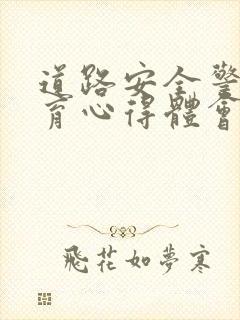 道路安全警
育心得體會
飛花如夢寒